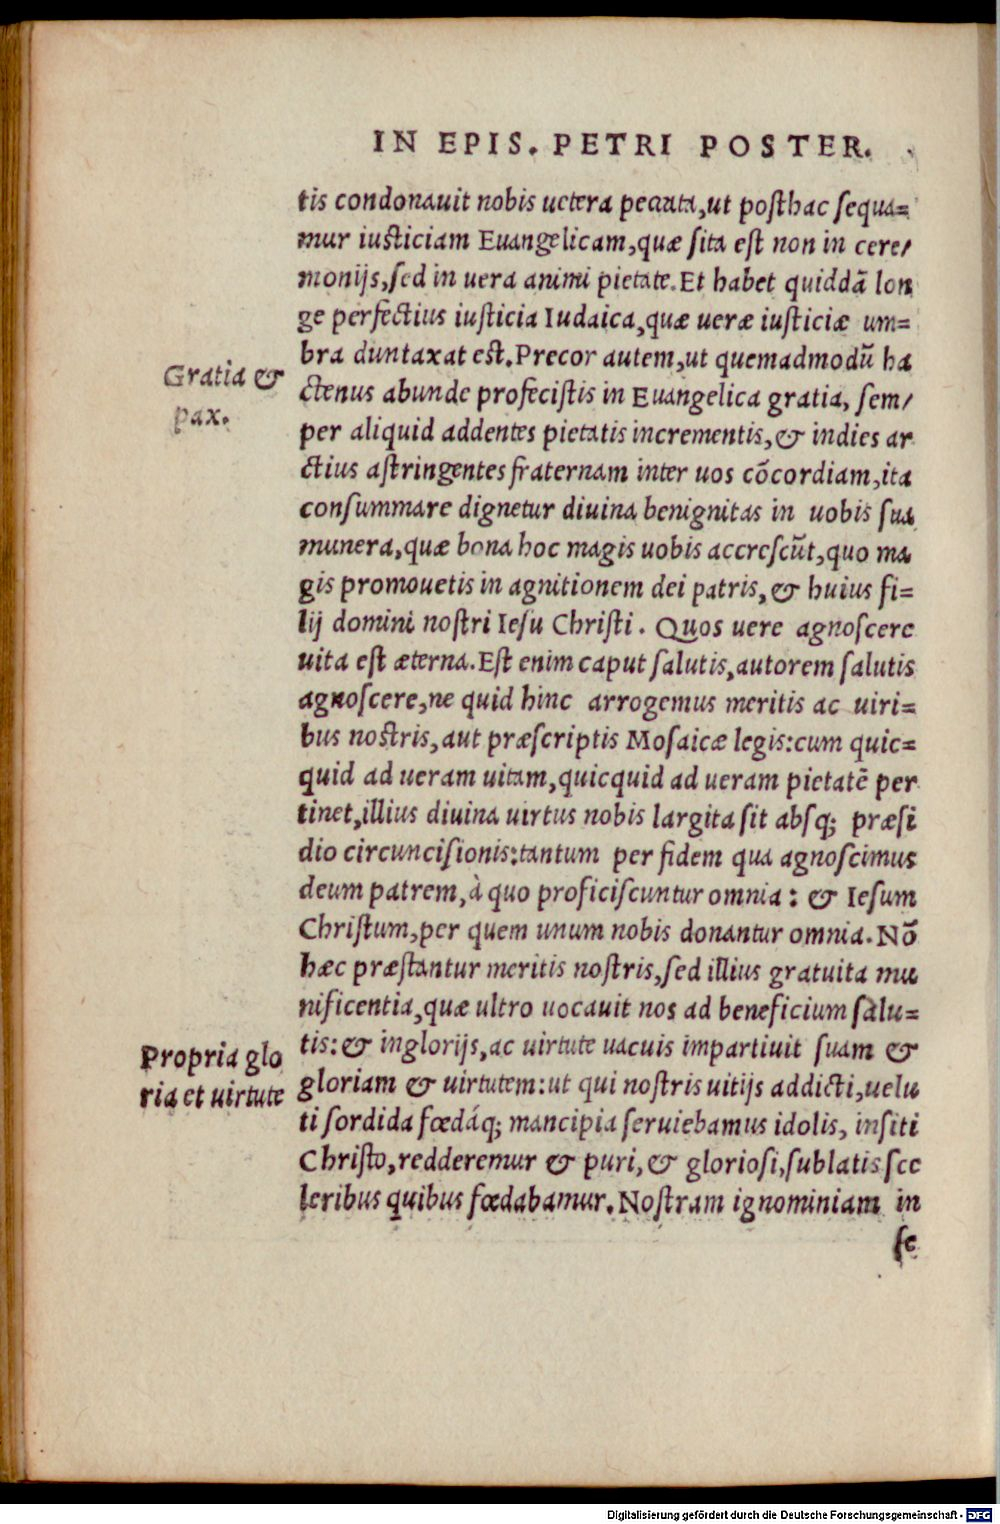 IN EPIS. PETRI POSTER.
tis condonauit nobis uetera peccata,ut posthac sequa=
mur iusticiam Euangelicam,quæ sita est non in cere/
monijs,sed in uera animi pietate.Et habet quiddā lon
ge perfectius iusticia Iudaica,quæ ueræ iusticiæ um=
bra duntaxat est.Precor autem,ut quemadmodū ha
Gratia &
pax.
ctenus abunde profecistis in Euangelica gratia, sem/
per aliquid addentes pietatis incrementis,& indies ar
ctius astringentes fraternam inter uos cōcordiam,ita
consummare dignetur diuina benignitas in uobis sua
munera,quæ bona hoc magis uobis accrescūt,quo ma
gis promouetis in agnitionem dei patris,& huius fi=
lij domini nostri Iesu Christi. Quos uere agnoscere
uita est æterna.Est enim caput salutis,autorem salutis
agnoscere,ne quid hinc arrogemus meritis ac uiri=
bus nostris,aut præscriptis Mosaicæ legis:cum quic=
quid ad ueram uitam,quicquid ad ueram pietatē per
tinet,illius diuina uirtus nobis largita sit absq; præsi
dio circuncisionis:tantum per fidem qua agnoscimus
deum patrem,à quo proficiscuntur omnia: & Iesum
Christum,per quem unum nobis donantur omnia.Nō
hæc præstantur meritis nostris,sed illius gratuita mu
nificentia,quæ ultro uocauit nos ad beneficium salu=
Propria glo
ria et uirtute
tis:& inglorijs,ac uirtute uacuis impartiuit suam &
gloriam & uirtutem:ut qui nostris uitijs addicti,uelu
ti sordida fœdáq; mancipia seruiebamus idolis, insiti
Christo,redderemur & puri,& gloriosi,sublatis sce
leribus quibus fœdabamur.Nostram ignominiam in
se
Digitalisierung gefördert durch die Deutsche Forschungsgemeinschaft - DFG